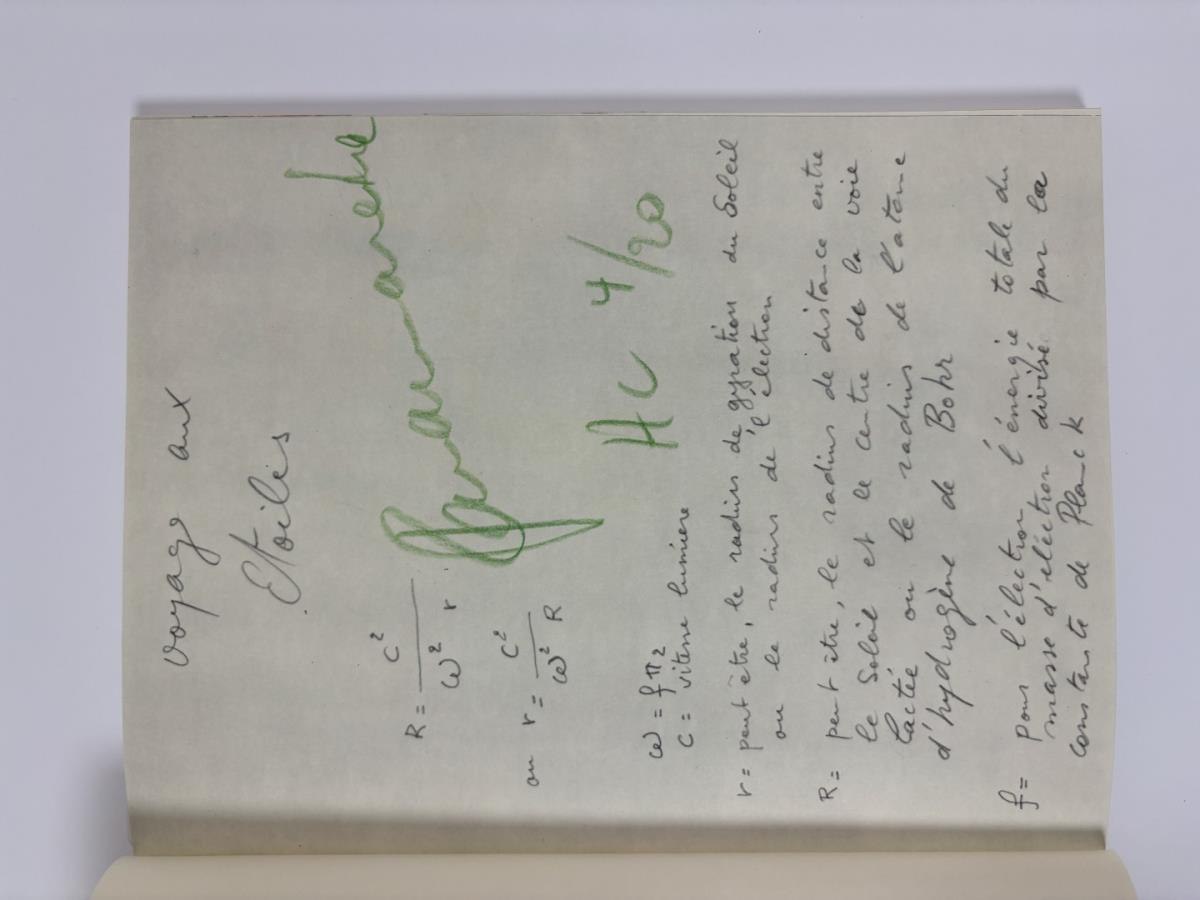 voyage aux
Etoiles
R = c² / ω² r
ou r = c² / ω² R
HC 4/20
ω = f π 2
c = vitesse lumière
r = peut être, le radius de gyration du Soleil
ou le radius de l'électron
R = peut être, le radius de distance entre
le Soleil et le centre de la voie
lactée ou le radius de l'atome
d'hydrogène de Bohr
f = pour l'électron l'énergie totale du
masse d'électron divisé par la
constante de Planck